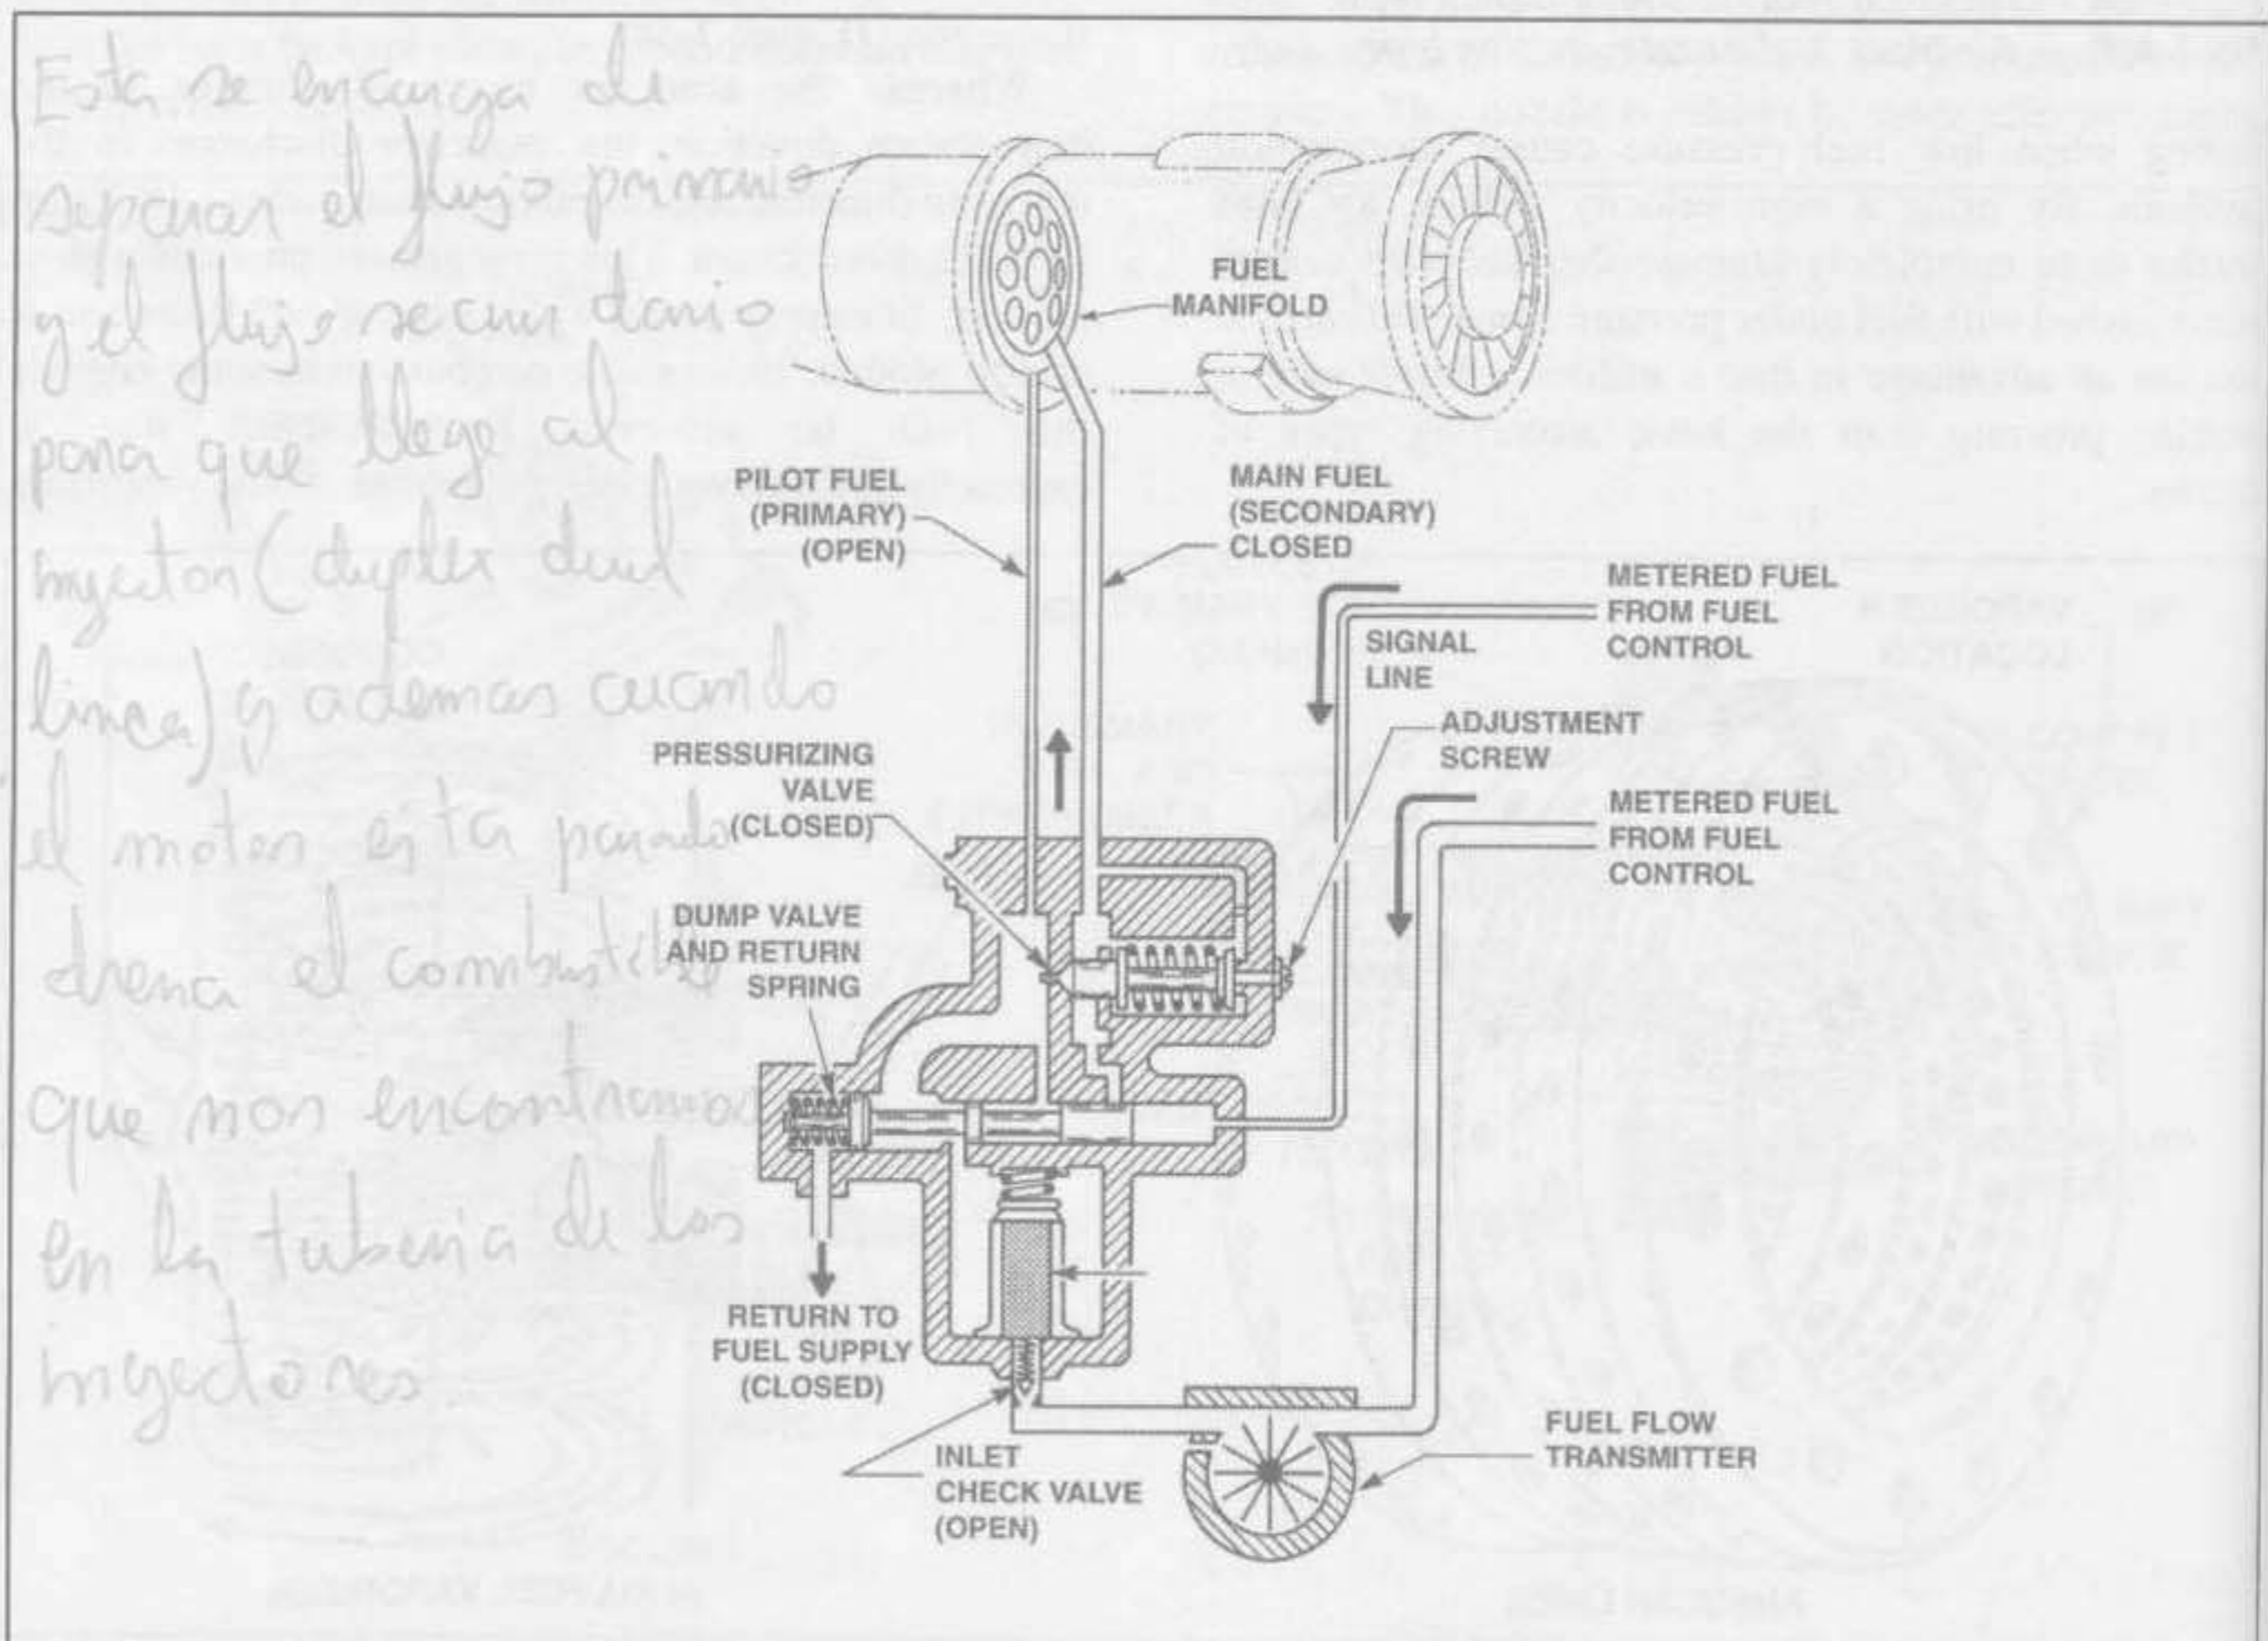 Esta se encarga de
separar el flujo primario
y el flujo secundario
para que llege al
inyector (duplex dual
linea) y ademas cuando
el motor esta parado
drena el combustible
que nos encontramos
en la tuberia de los
inyectores
FUEL
MANIFOLD
PILOT FUEL
(PRIMARY)
(OPEN)
MAIN FUEL
(SECONDARY)
CLOSED
METERED FUEL
FROM FUEL
CONTROL
SIGNAL
LINE
ADJUSTMENT
SCREW
PRESSURIZING
VALVE
(CLOSED)
METERED FUEL
FROM FUEL
CONTROL
DUMP VALVE
AND RETURN
SPRING
RETURN TO
FUEL SUPPLY
(CLOSED)
INLET
CHECK VALVE
(OPEN)
FUEL FLOW
TRANSMITTER